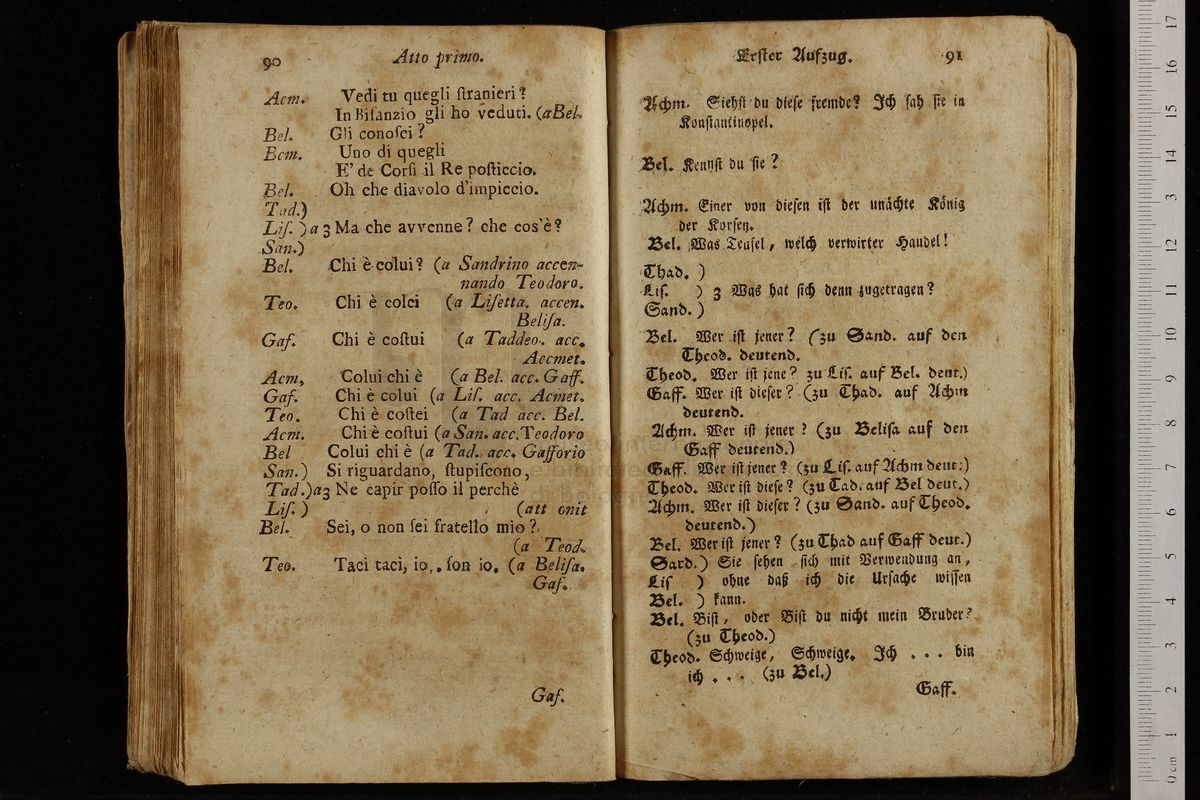 90 Atto primo.
Acm. Vedi tu quegli ſtranieri?
In Biſanzio gli ho veduti. (a Bel.
Bel. Gli conoſci?
Bcm. Uno di quegli
E' de Corſi il Re poſticcio.
Bel. Oh che diavolo d'impiccio.
Tad.)
Liſ. ) a 3 Ma che avvenne? che cos'è?
San.)
Bel. Chi è colui? (a Sandrino accen-
nando Teodoro.
Teo. Chi è colei (a Liſetta. accen.
Beliſa.
Gaf. Chi è coſtui (a Taddeo. acc.
Accmet.
Acm, Colui chi è (a Bel. acc. Gaff.
Gaf. Chi è colui (a Liſ. acc. Acmet.
Teo. Chi è coſtei (a Tad acc. Bel.
Acm. Chi è coſtui (a San. acc. Teodoro
Bel Colui chi è (a Tad. acc. Gafforio
San.) Si riguardano, ſtupiſcono,
Tad.)a3 Ne capir poſſo il perchè
Liſ. ) (att onit
Bel. Sei, o non ſei fratello mio?
(a Teod.
Teo. Taci taci, io,. ſon io. (a Beliſa.
Gaf.
Gaf.
Erſter Aufzug. 91
Achm. Siehſt du dieſe fremde? Ich ſah ſie in
Konſtantinopel.
Bel. Kennſt du ſie?
Achm. Einer von dieſen iſt der unächte König
der Korſen.
Bel. Was Teufel, welch verwirter Handel!
Thad. )
Liſ. ) 3 Was hat ſich denn zugetragen?
Sand. )
Bel. Wer iſt jener? (zu Sand. auf den
Theod. deutend.
Theod. Wer iſt jene? zu Liſ. auf Bel. deut.)
Gaff. Wer iſt dieſer? (zu Thad. auf Achm
deutend.
Achm. Wer iſt jener? (zu Beliſa auf den
Gaff deutend.)
Gaff. Wer iſt jener? (zu Liſ. auf Achm deut.)
Theod. Wer iſt dieſe? (zu Tad. auf Bel deut.)
Achm. Wer iſt dieſer? (zu Sand. auf Theod.
deutend.)
Bel. Wer iſt jener? (zu Thad auf Gaff deut.)
Sard.) Sie ſehen ſich mit Verwendung an,
Liſ ) ohne daß ich die Urſache wiſſen
Bel. ) kann.
Bel. Biſt, oder Biſt du nicht mein Bruder?
(zu Theod.)
Theod. Schweige, Schweige. Ich . . . bin
ich . . . (zu Bel.)
Gaff.
17
16
15
14
13
12
11
10
9
8
7
6
5
4
3
2
1
0 cm